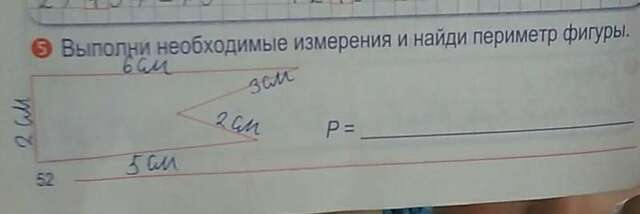 5 Выполни необходимые измерения и найди периметр фигуры.
6 см
3 см
2 см
2 см
P =
5 см
52